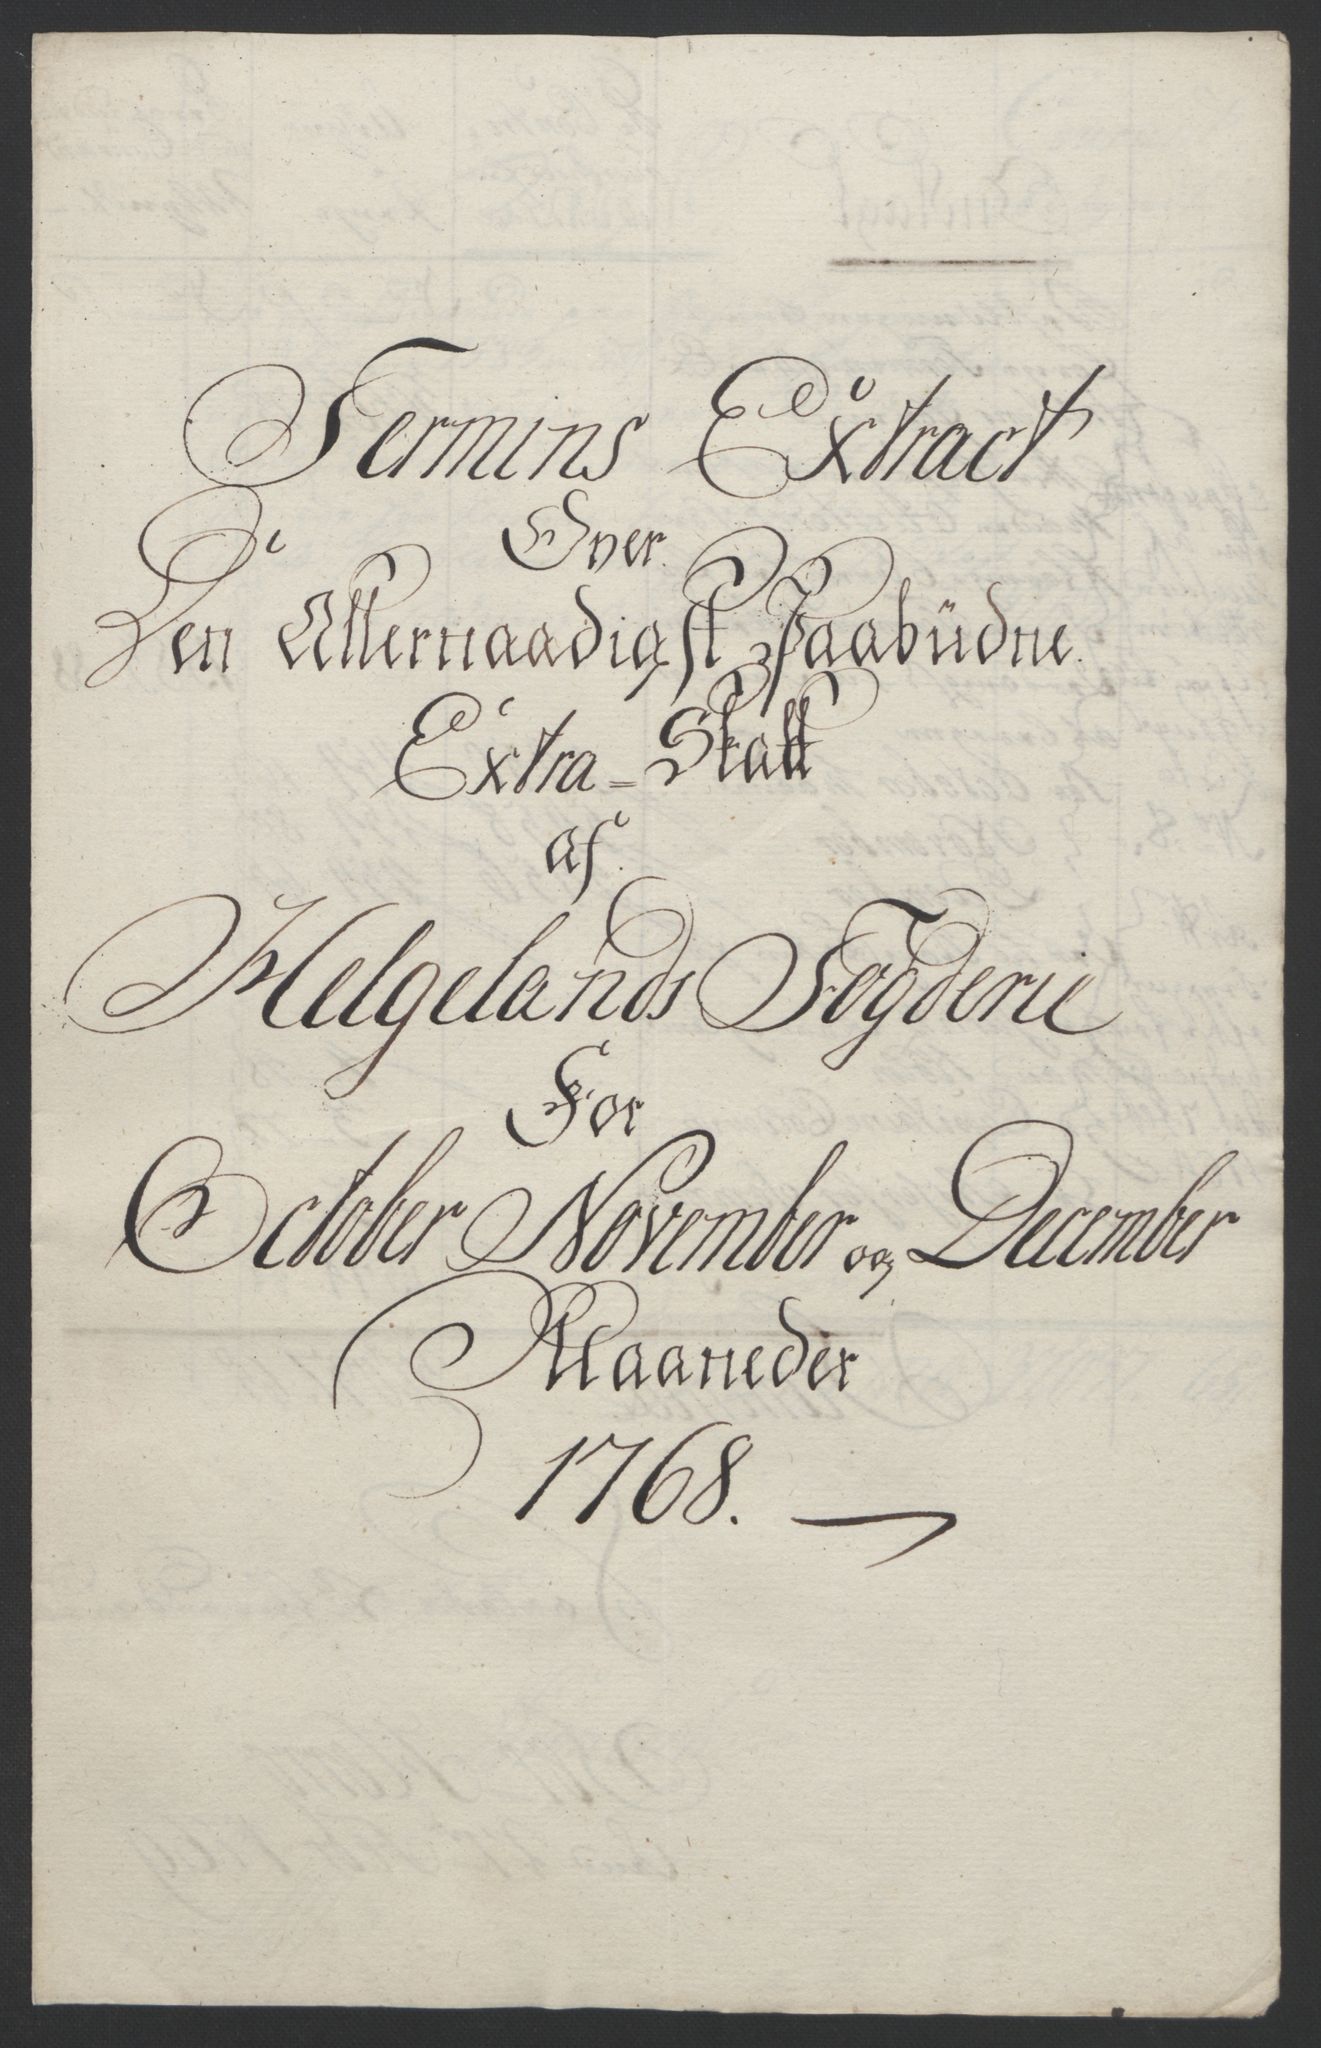 Termins Extract
Over
Den Allernaadigst Paabüdne
Extra-Skatt
af
Helgelands Fogderie
For
October November og December
Maaneder
1768.